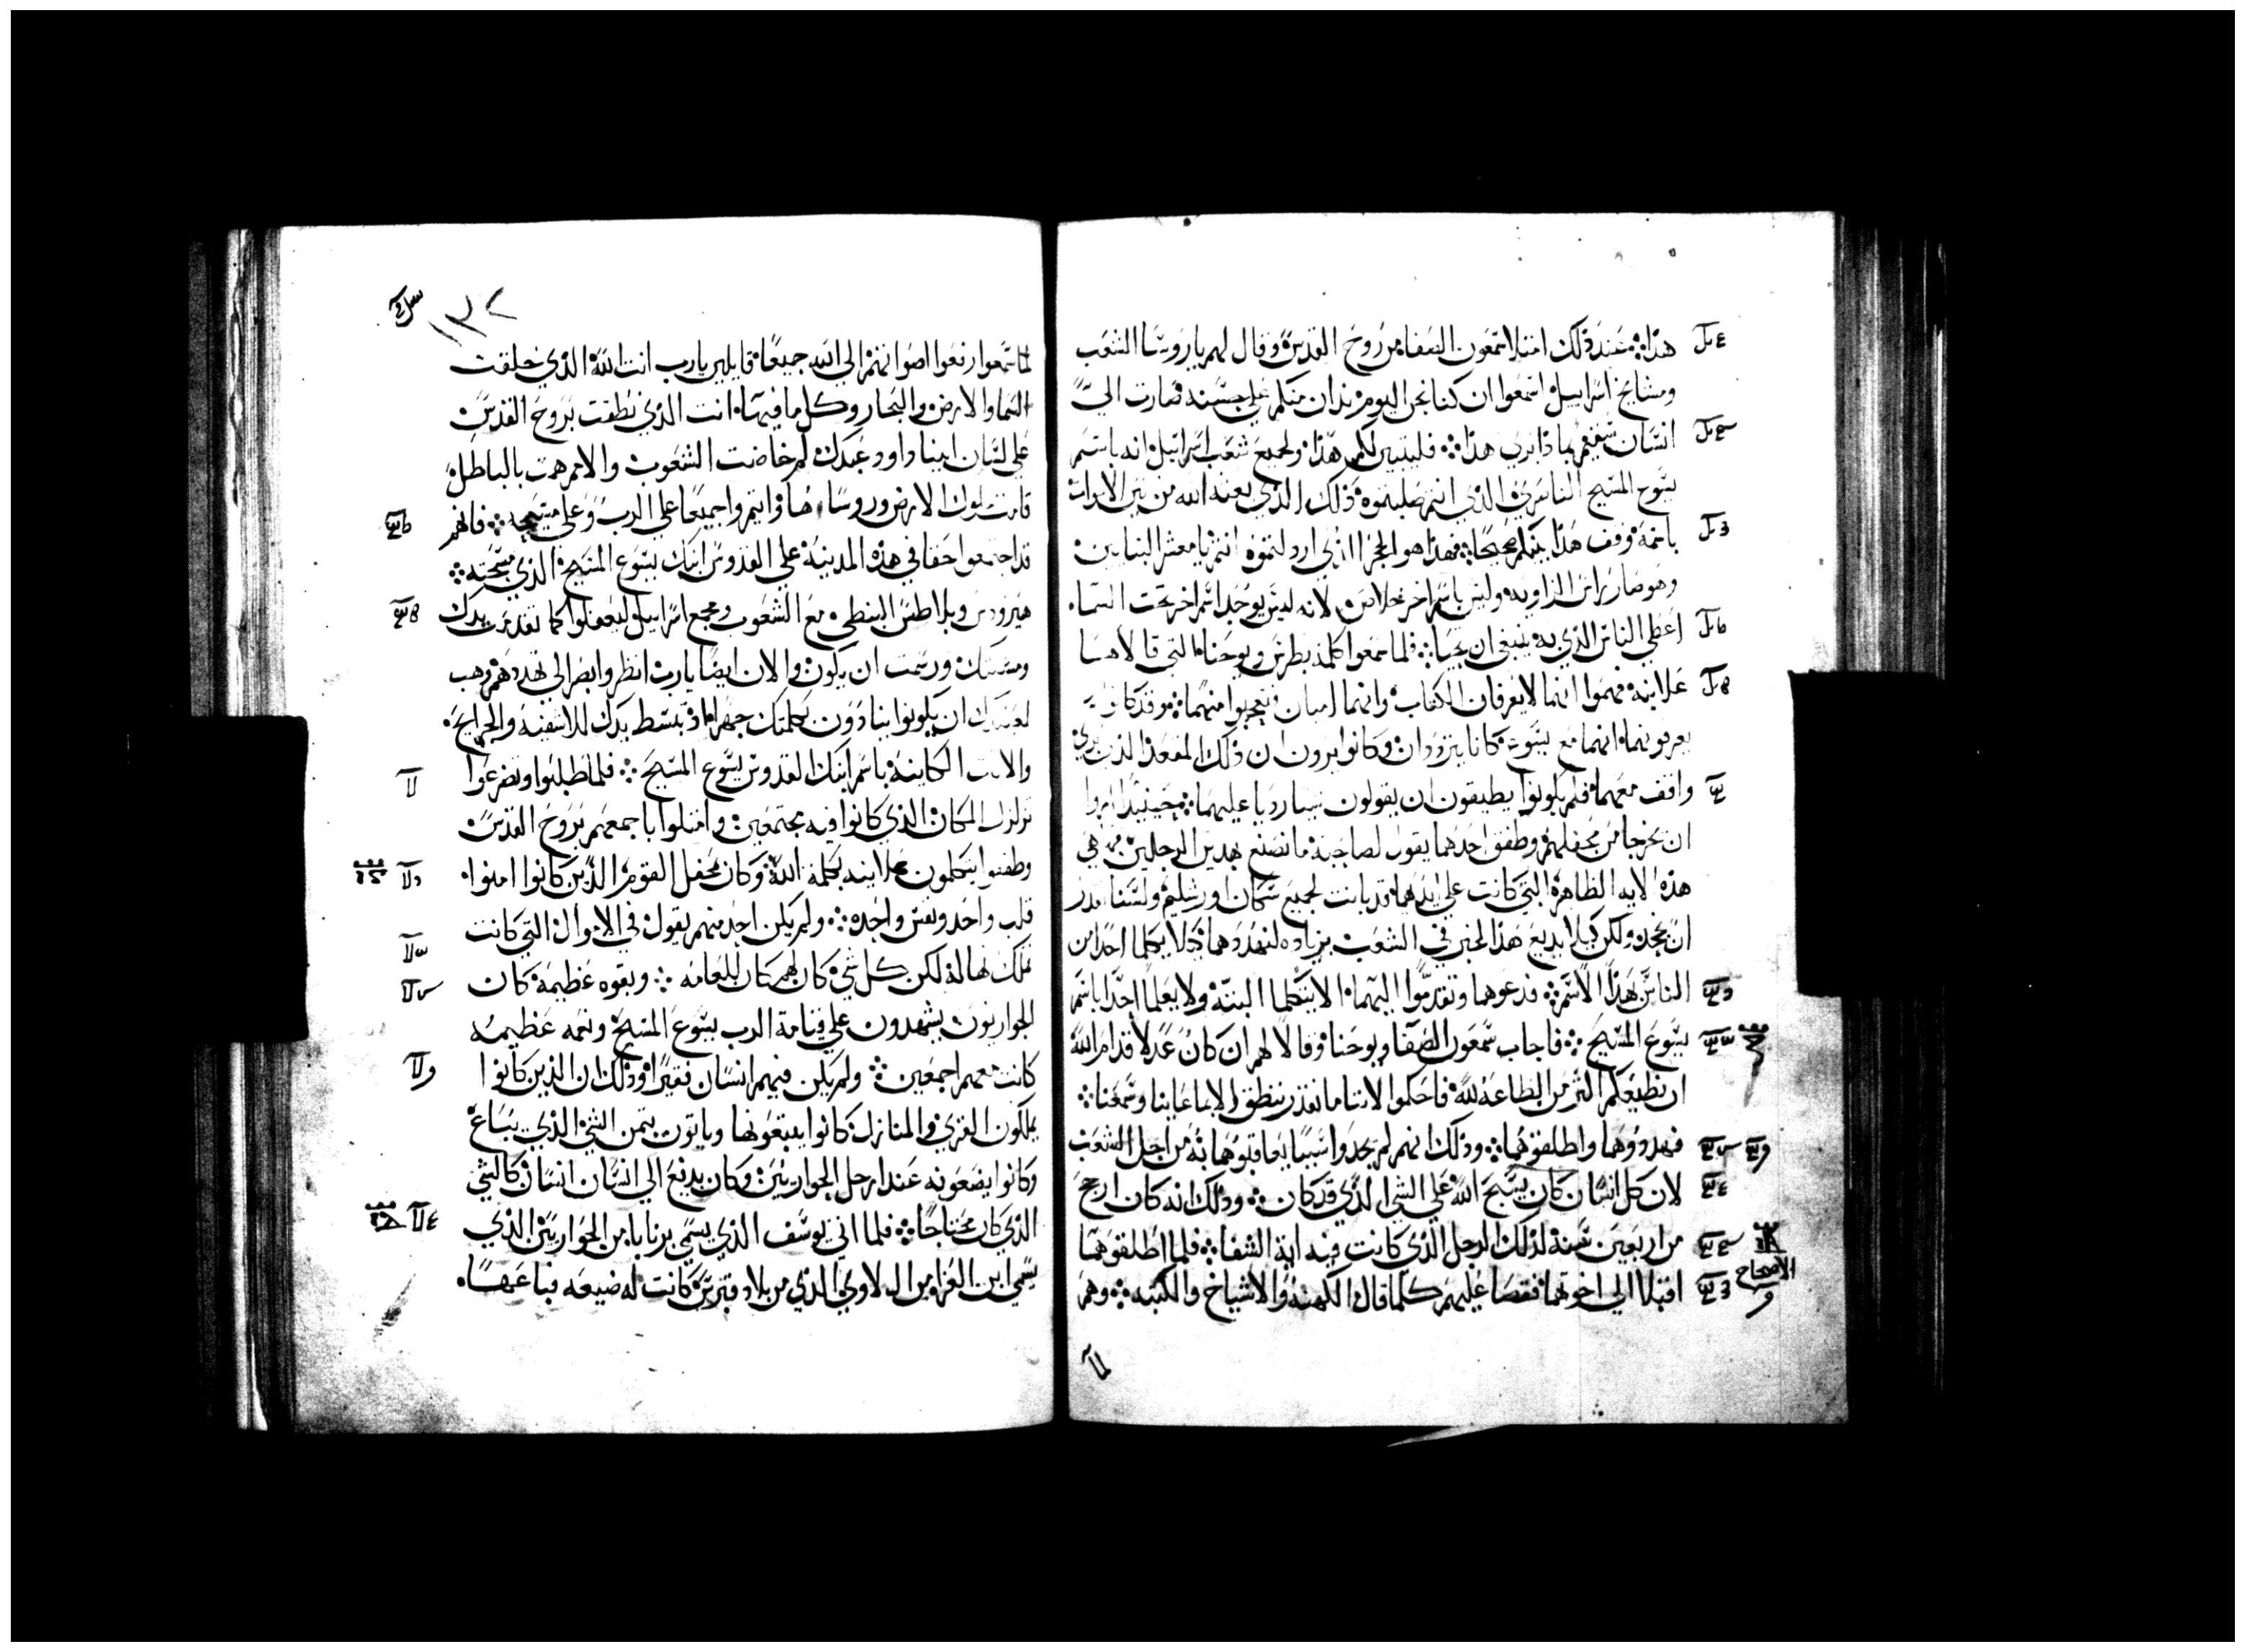 هذا ܀ عند ذلك امتلا شمعون الصفا من روح القدس وقال لهم يا روسا الشعب
ومشايخ اسراييل اسمعوا ان كنا نحن اليوم ندان منكم علي حسنه صارت الي
انسان سقيم بماذا بري هذا ܀ فليتبين لكم هذا ولجميع شعب اسراييل انه باسم
يسوع المسيح الناصري الذي انتم صلبتموه ذلك الذي بعثه الله من بين الاموات
باسمه وقف هذا بينكم صحيحا ܀ فهذا هو الحجر الذي ارذلتموه انتم يا معشر البنايين
وهو صار راس الزاويه وليس باسم اخر خلاص لانه ليس يوجد اسم اخر تحت السماء
اعطي الناس الذي به ينبغي ان نحيا ܀ فلما سمعوا كلمة بطرس ويوحنا التي قالاها
علانيه فهموا انهما لا يعرفان الكتاب وانهما اميان فتعجبوا منهما ܀ وقد كانوا
يعرفونهما انهما مع يسوع كانا يترددان وكانوا يرون ان ذلك المقعد الذي بري
واقف معهما فلم يكونوا يطيقون ان يقولون شيا رديا عليهما ܀ حينيذ امروا
ان يخرجا من محفلهم وطفق احدهما يقول لصاحبه ما نصنع بهدين الرجلين
هذه الايه الظاهره التي كانت علي ايديهما قد بانت لجميع سكان اورشليم ولسنا نقدر
ان نجحد ولكن كيلا يذيع هذا الخبر في الشعب بزياده لنهددهما كيلا يكلما احدا من
الناس بهذا الاسم ܀ فدعوهما وتقدموا اليهما الا يتكلما البته ولا يعلما احدا باسم
يسوع المسيح ܀ فاجاب شمعون الصفا ويوحنا وقالا لهم ان كان عدلا قدام الله
ان نطيعكم اكثر من الطاعه لله فاحكموا لاننا ما نقدر ننطق الا بما عاينا وسمعنا ܀
فهددوهما واطلقوهما ܀ وذلك انهم لم يجدوا سببا يعاقبوهما به من اجل الشعب
لان كل انسان كان يسبح الله علي الشي الذي قد كان ܀ وذلك انه كان ارجح
من اربعين سنه لذلك الرجل الذي كانت فيه اية الشفا ܀ فلما اطلقوهما
اقبلا الي اخوتهما فقصا عليهم كلما قال الكهنه والاشياخ والكتبه ܀ وهم
الاصحاح
١٣٢
لما سمعوا رفعوا اصواتهم الي الله جميعا قايلين يا رب انت الله الذي خلقت
السما والارض والبحار وكل ما فيها انت الذي نطقت بروح القدس
علي لسان ابينا داود عبدك لم خاضت الشعوب والامم همت بالباطل
قامت ملوك الارض وروساها واتمروا جميعا علي الرب وعلي مسيحه ܀ فانهم
قد اجتمعوا حقا في هذه المدينه علي القدوس ابنك يسوع المسيح الذي مسحته ܀
هيرودس وبيلاطس البنطي مع الشعوب ومجمع اسراييل ليفعلوا كما تقدمت يدك
ومشيتك ورسمت ان يكون والان ايضا يا رب انظر وابصر الي تهددهم وهب
لعبيدك ان يكونوا ينادون بكلمتك جهرا اذ تبسط يدك للاشفيه والجرايح
والايات الكاينه باسم ابنك القدوس يسوع المسيح ܀ فلما طلبوا وتضرعوا
تزلزل المكان الذي كانوا فيه مجتمعين وامتلوا باجمعهم بروح القدس
وطفقوا يتكلمون علانيه بكلمة الله وكان محفل القوم الذين كانوا امنوا
قلب واحد ونفس واحده ܀ ولم يكن احد منهم يقول في الاموال التي كانت
تملك انها له لكن كل شي كان لهم كان للعامه ܀ وبقوه عظيمه كان
الحواريون يشهدون علي قيامة الرب يسوع المسيح ونعمه عظيمه
كانت معهم اجمعين ܀ ولم يكن فيهم انسان فقيرا وذلك ان الذين كانوا
يملكون القري والمنازل كانوا يبيعونها وياتون بثمن الشي الذي يباع
وكانوا يضعونه عند ارجل الحواريين وكان يدفع الي انسان انسان كالشي
الذي كان محتاجا ܀ فلما اتي يوسف الذي يسمي برنابا من الحواريين الذي
يسمي ابن العزا من ال لاوي الذي من بلاد قبرس كانت له ضيعه فباعها